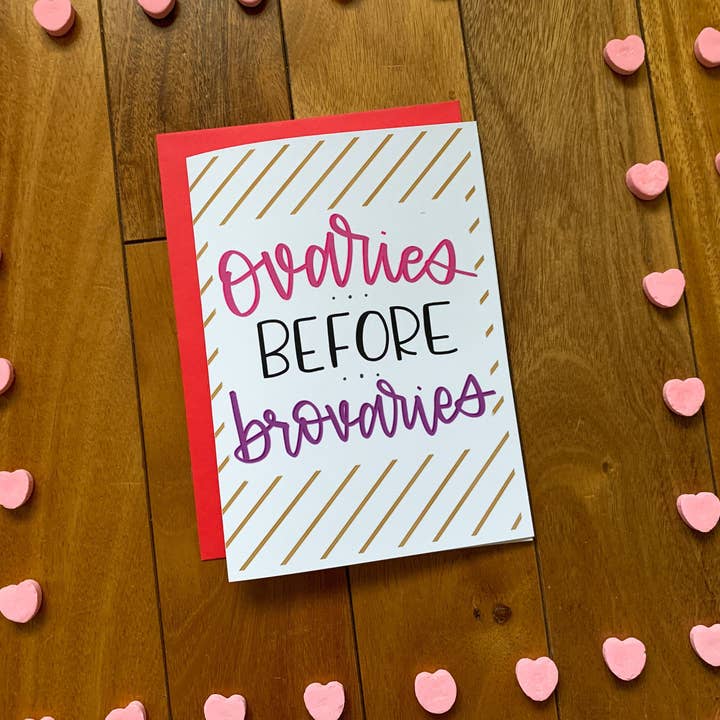 ovaries
BEFORE
brovaries